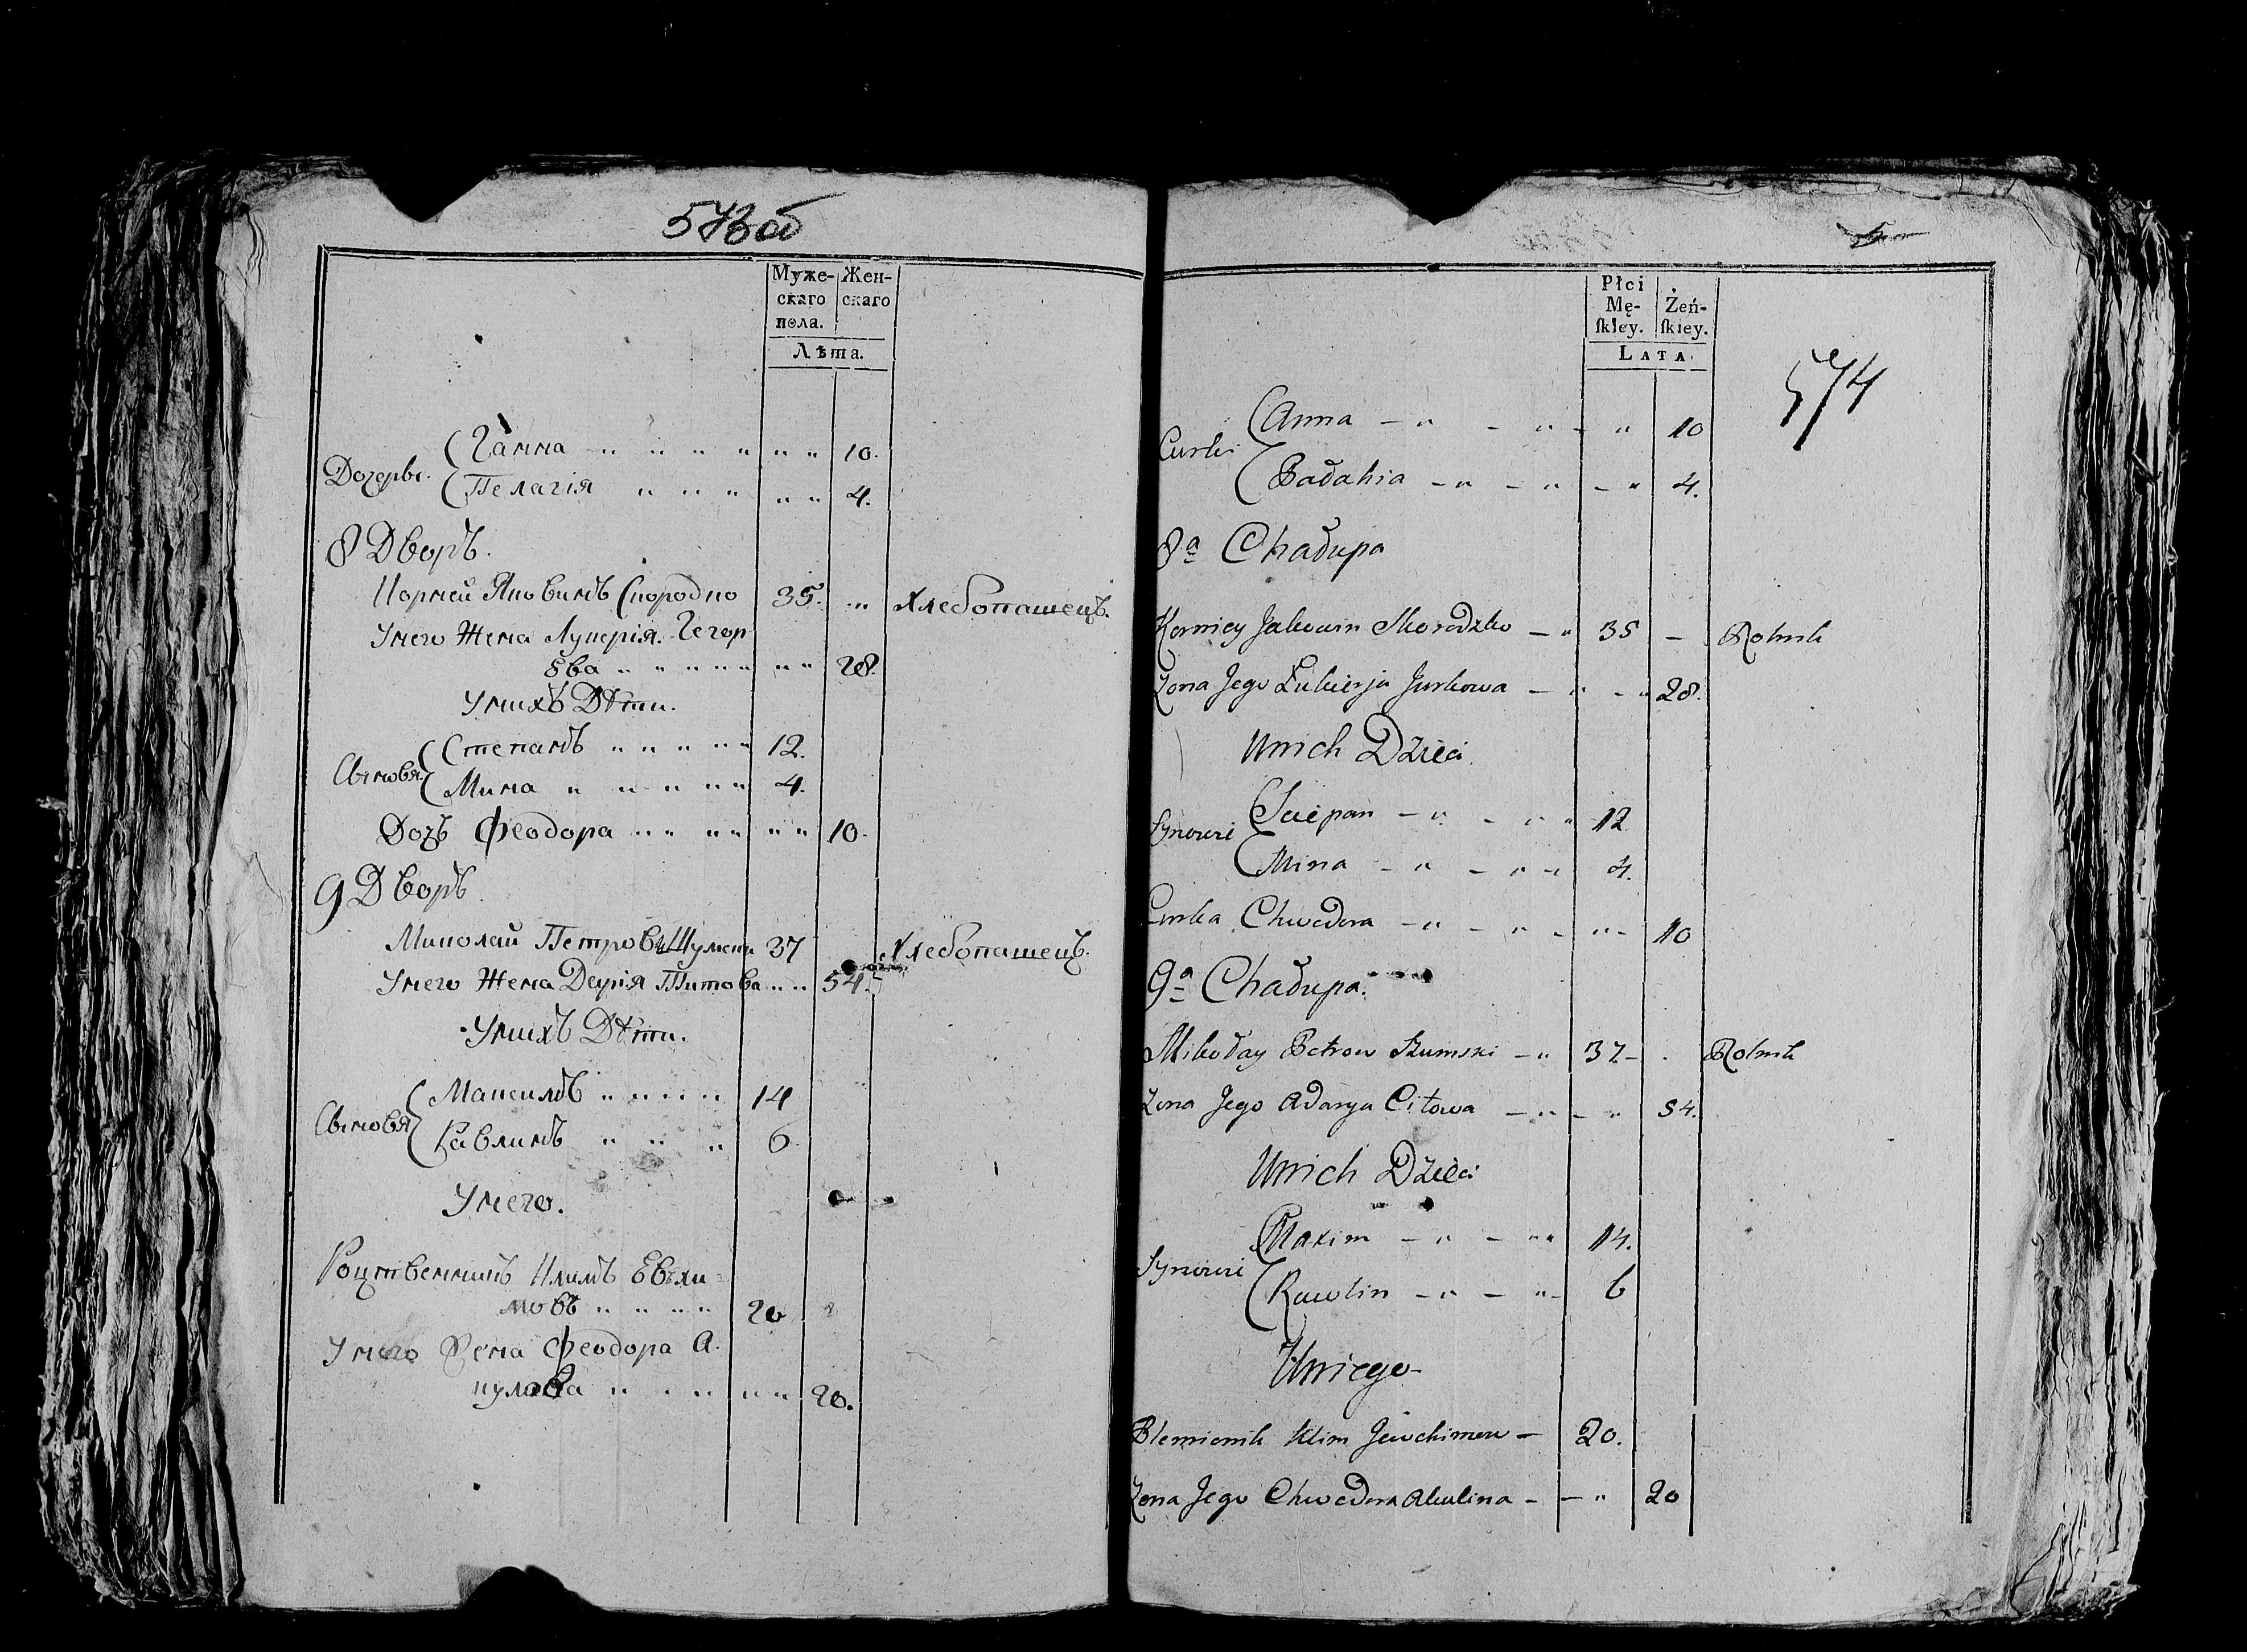 573об
Муже- Жен-
скаго скаго
пола.
Лѣта.
Дочерьи Ганна 10.
Пелагія 4.
8 Дворъ.
Корней Яковинъ Скородко 35. Хлебопашецъ.
Унего Жена Лукерія Гегор
ева 28.
Унихъ Дѣти.
Сыновя Степанъ 12.
Мина 4.
Дочь Феодора 10.
9 Дворъ.
Миколай Петровъ 37 Хлебопашецъ.
Унего Жена Дарія Титова 54.
Унихъ Дѣти.
Максимъ 14
Сыновя
Равлинъ 6
Унего.
Климъ Евхи
мовъ 20
Унего Жена Феодора А
кулова 20.
5
574
Płci
Mę- Żeń-
ſkiey. ſkiey.
LATA.
Anna 10
Curki
Padahia 4.
8a Chałupa
Korniey Jakowin Skorodzko 35 Rolnik
Żona Jego Łukierja Jurkowa 28.
Unich Dzieci
Sciepan 12
Synowi
Mina 4.
Curka Chwedora 10
9a Chałupa.
Mikołay Petrow Szumski 37 Rolnik
Żona Jego Adarya Citowa 54.
Unich Dzieci
Maxim 14.
Synowi
Rawlin 6
Uniego
Plemienik Klim Jewchimow 20.
Żona Jego Chwedora Akulina 20